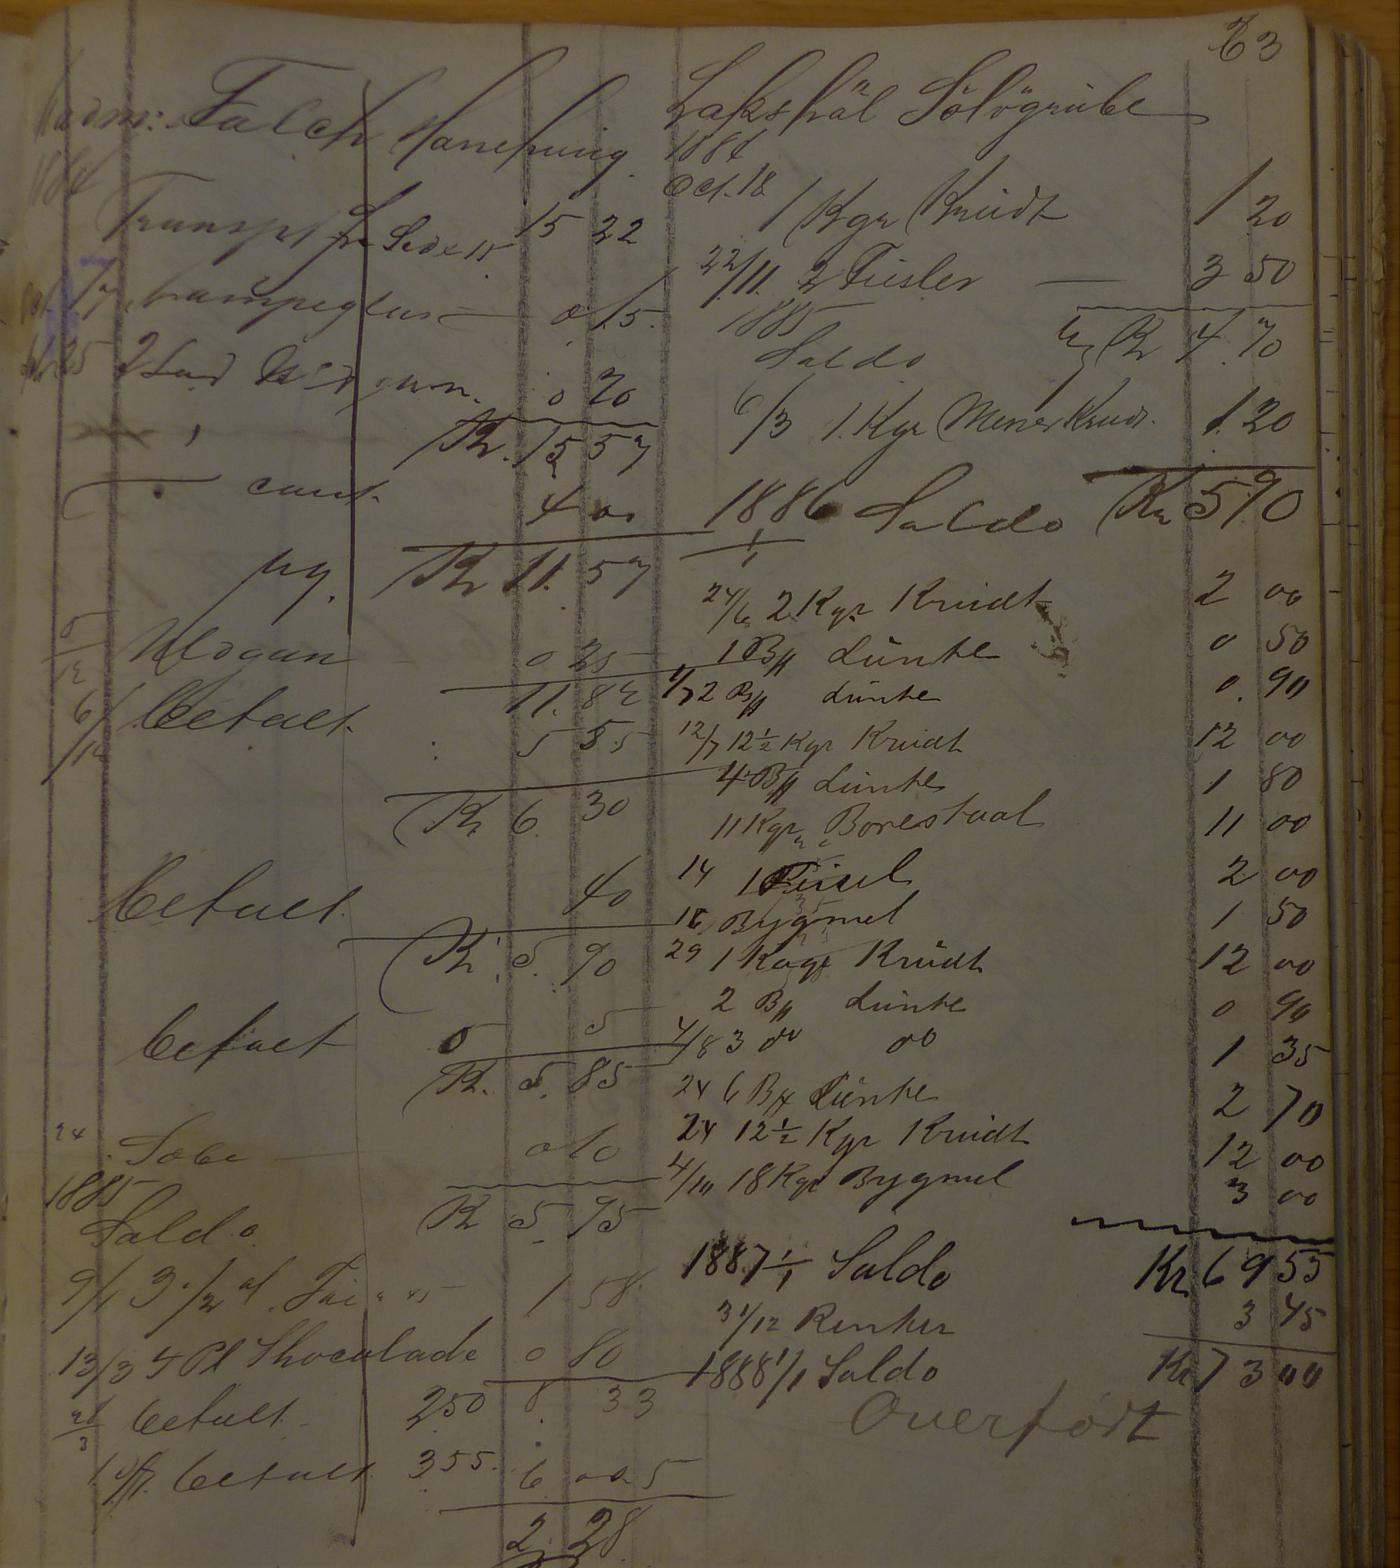 63
Madm: Falch
1884
Transpt fra Side 15 22
Lampeglas 0 15
0 20
Kr. 15 57
cant 4 00
Kr 11. 57
Uldgarn 0 25
11. 82
Betalt 5 55
Kr 6. 30
Betalt 40
Kr. 5. 90
betalt 5
Kr. 5. 85
24 Sæbe 0 10
1885
Saldo Kr 5. 95
9/1 3 1/2 al. 1 58
13/3 4 Pl Shocolade 0 80
8. 33
betalt 250
betalt 355. 6. 005
2. 28
Sölögrube
1884
Oct. 18 1 Kgr Krudt 1 20
22/11. 2 Feisler 3 50
1885
Saldo Kr 4. 70
6/3 1. Kgr Minerkrudt. 1. 20
1886 Saldo Kr 5 90
24/6 2 Kgr Krudt 2 00
1 B Lunte 0 50
1/7 2 B Lunte 0. 90
12/7 12 1/2 Kgr Krudt 12 00
4 B Lunte 1 80
11 Kgr Borestaal 11 00
14 1 Feisel 2 00
18 Bygmel 1 50
29 1 Kagge Krudt 12 00
2 B Lunte 0 90
4/8 3 do do 1 35
24 6 B Lunte 2 70
24 12 1/2 Kgr Krudt 12 00
4/10 18 Kgr Bygmel 3 00
1887 1/1 Saldo Kr 69 55
31/12 Renter 3 45
1888 1/1 Saldo Kr 73 00
Overfört